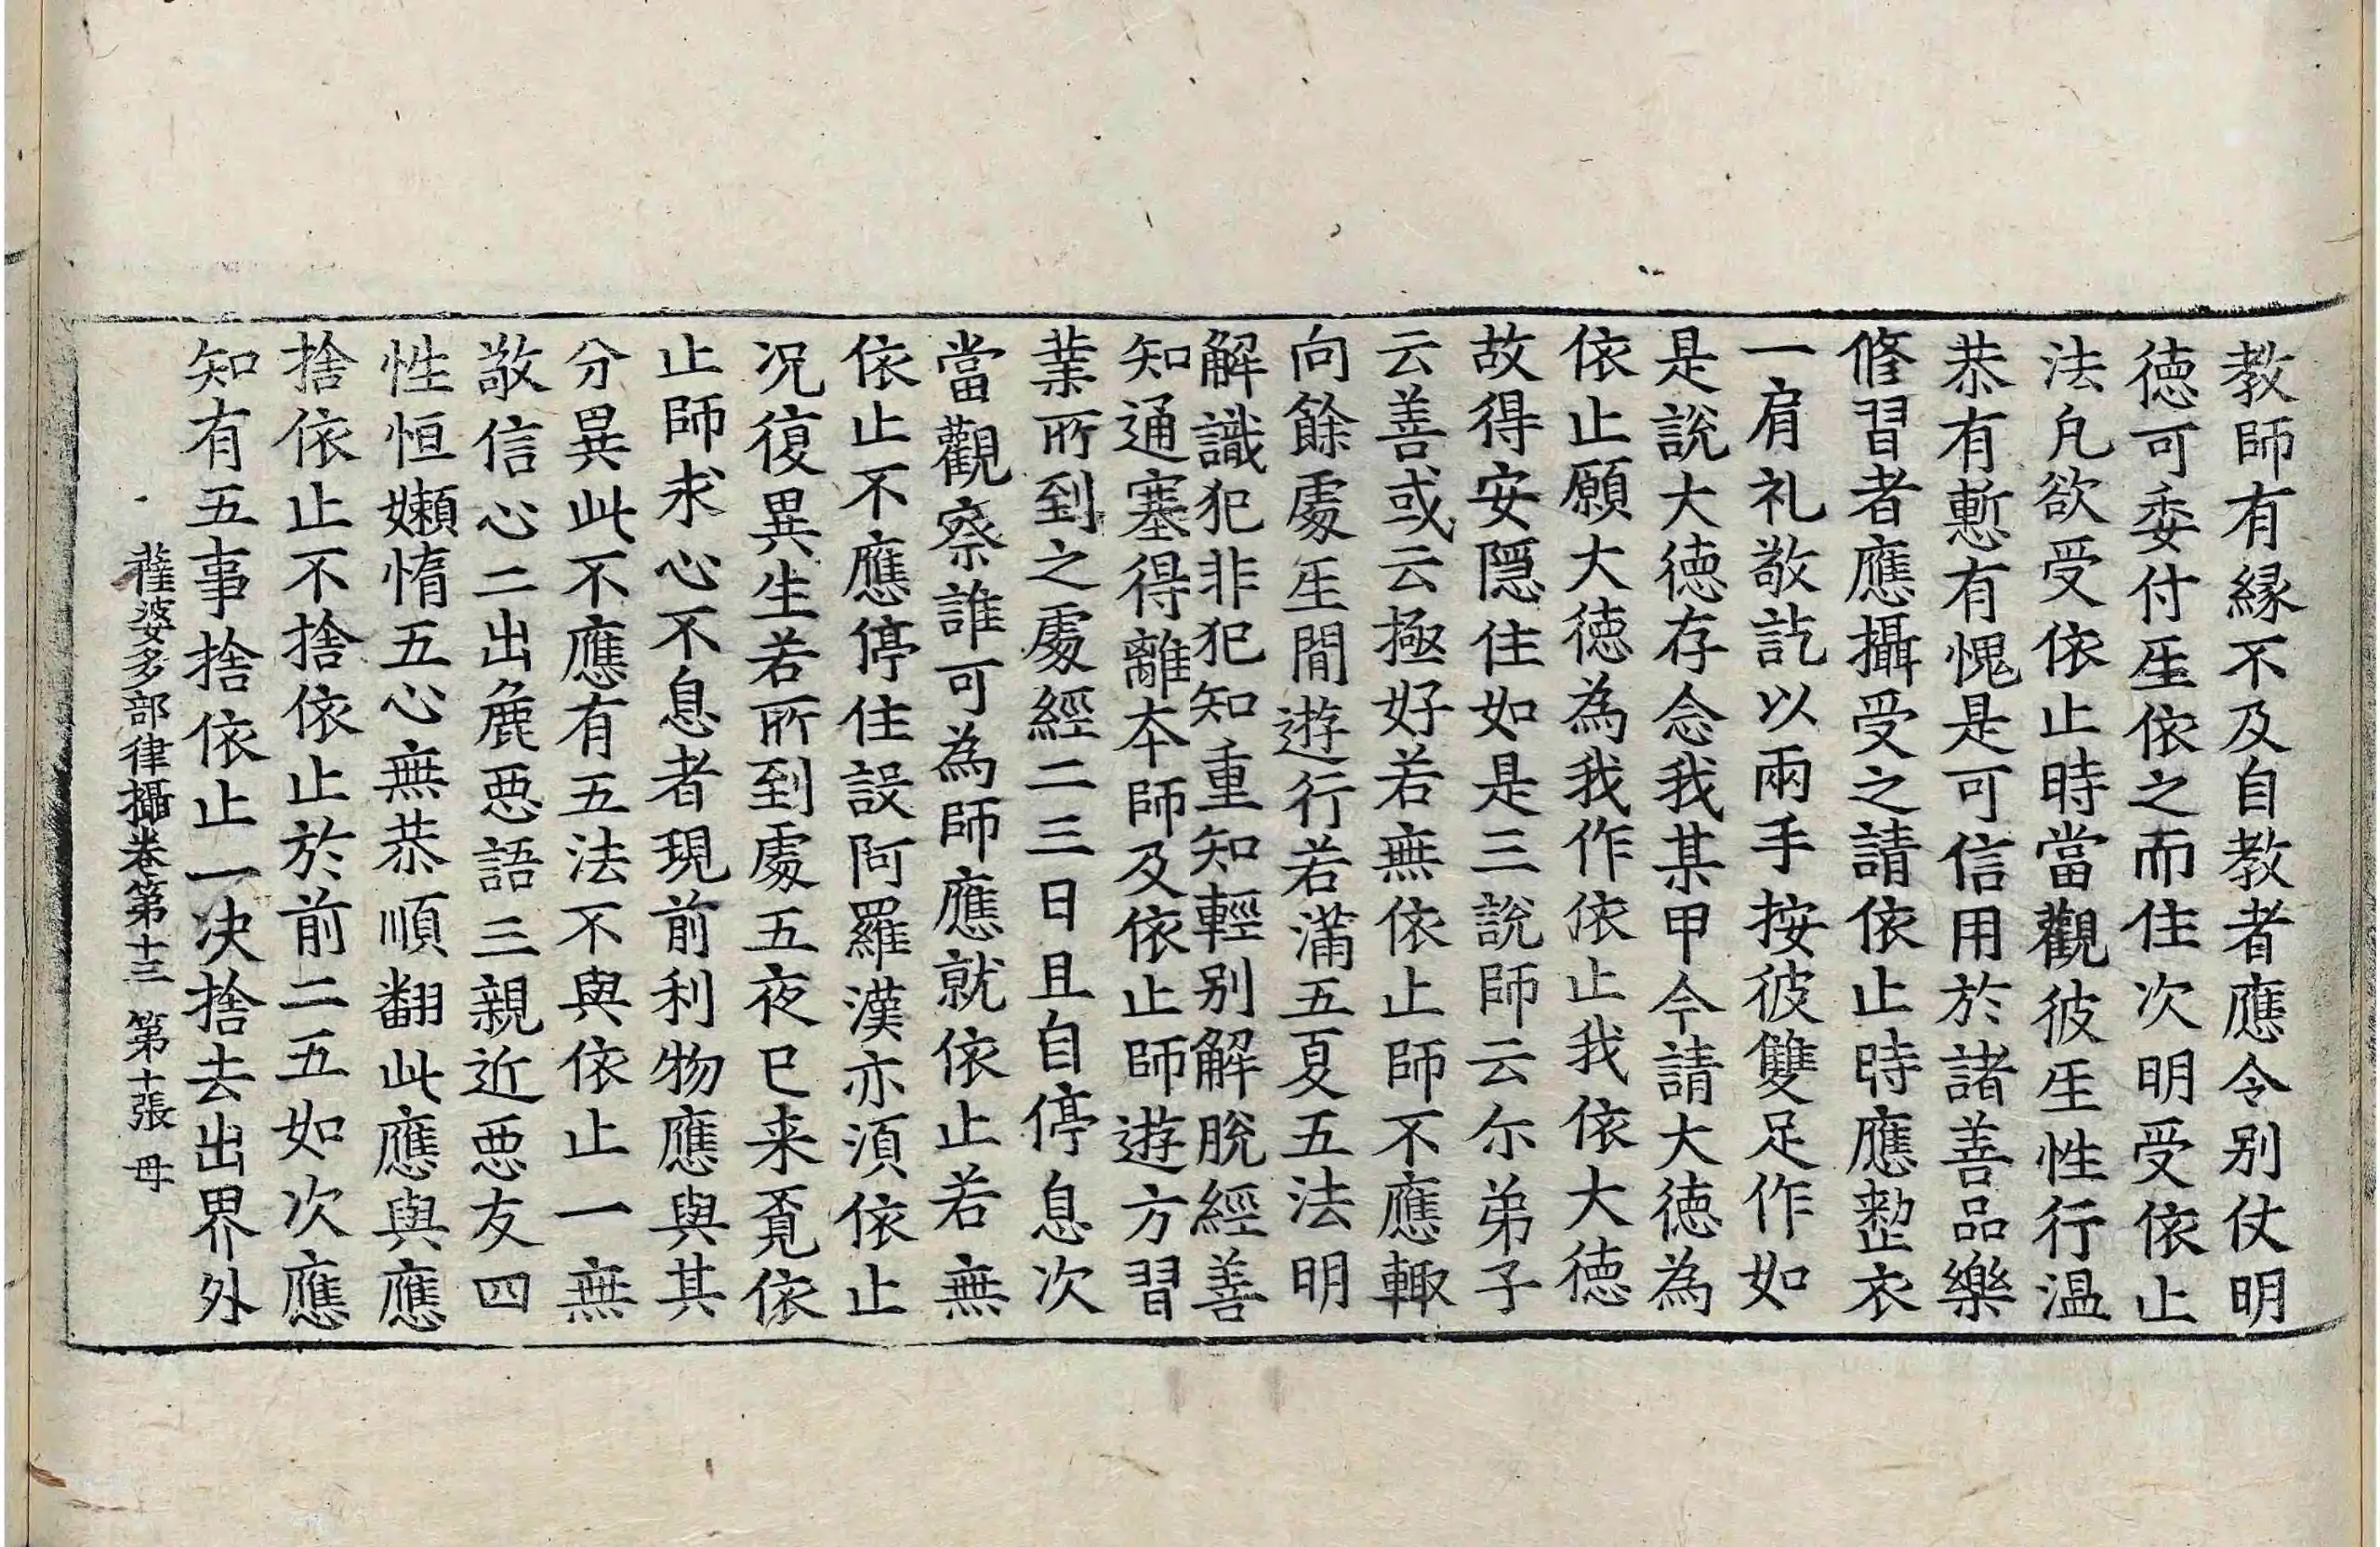 教師有緣不及自教者應令别仗明
德可委付𤯔依之而住次明受依止
法凡欲受依止時當觀彼𤯔性行温
恭有慙有愧是可信用於諸善品樂
修習者應攝受之請依止時應整衣
一肩礼敬訖以兩手按彼雙足作如
是說大德存念我某甲今請大德為
依止願大德為我作依止我依大德
故得安隱住如是三說師云尒弟子
云善或云極好若無依止師不應輙
向餘處𤯔閒遊行若滿五夏五法明
解識犯非犯知重知輕别解脫經善
知通塞得離夲師及依止師遊方習
業所到之處經二三日且自停息次
當觀察誰可為師應就依止若無
依止不應停住設阿羅漢亦湏依止
况復異生若所到處五夜已来覔依
止師求心不息者現前利物應與其
分異此不應有五法不與依止一無
敬信心二出麁惡語三親近惡友四
性恒嬾惰五心無恭順翻此應與應
捨依止不捨依止於前二五如次應
知有五事捨依止一决捨去出界外
薩婆多部律攝卷第十三 第十張 毋